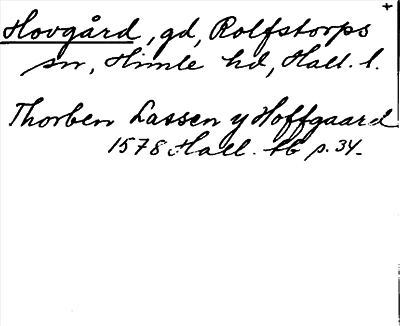 Hovgård, gd, Rolfstorps
sn, Himle hd, Hall. l.
Thorben Lassen y Hoffgaard
1578 Hall. tb p. 34.